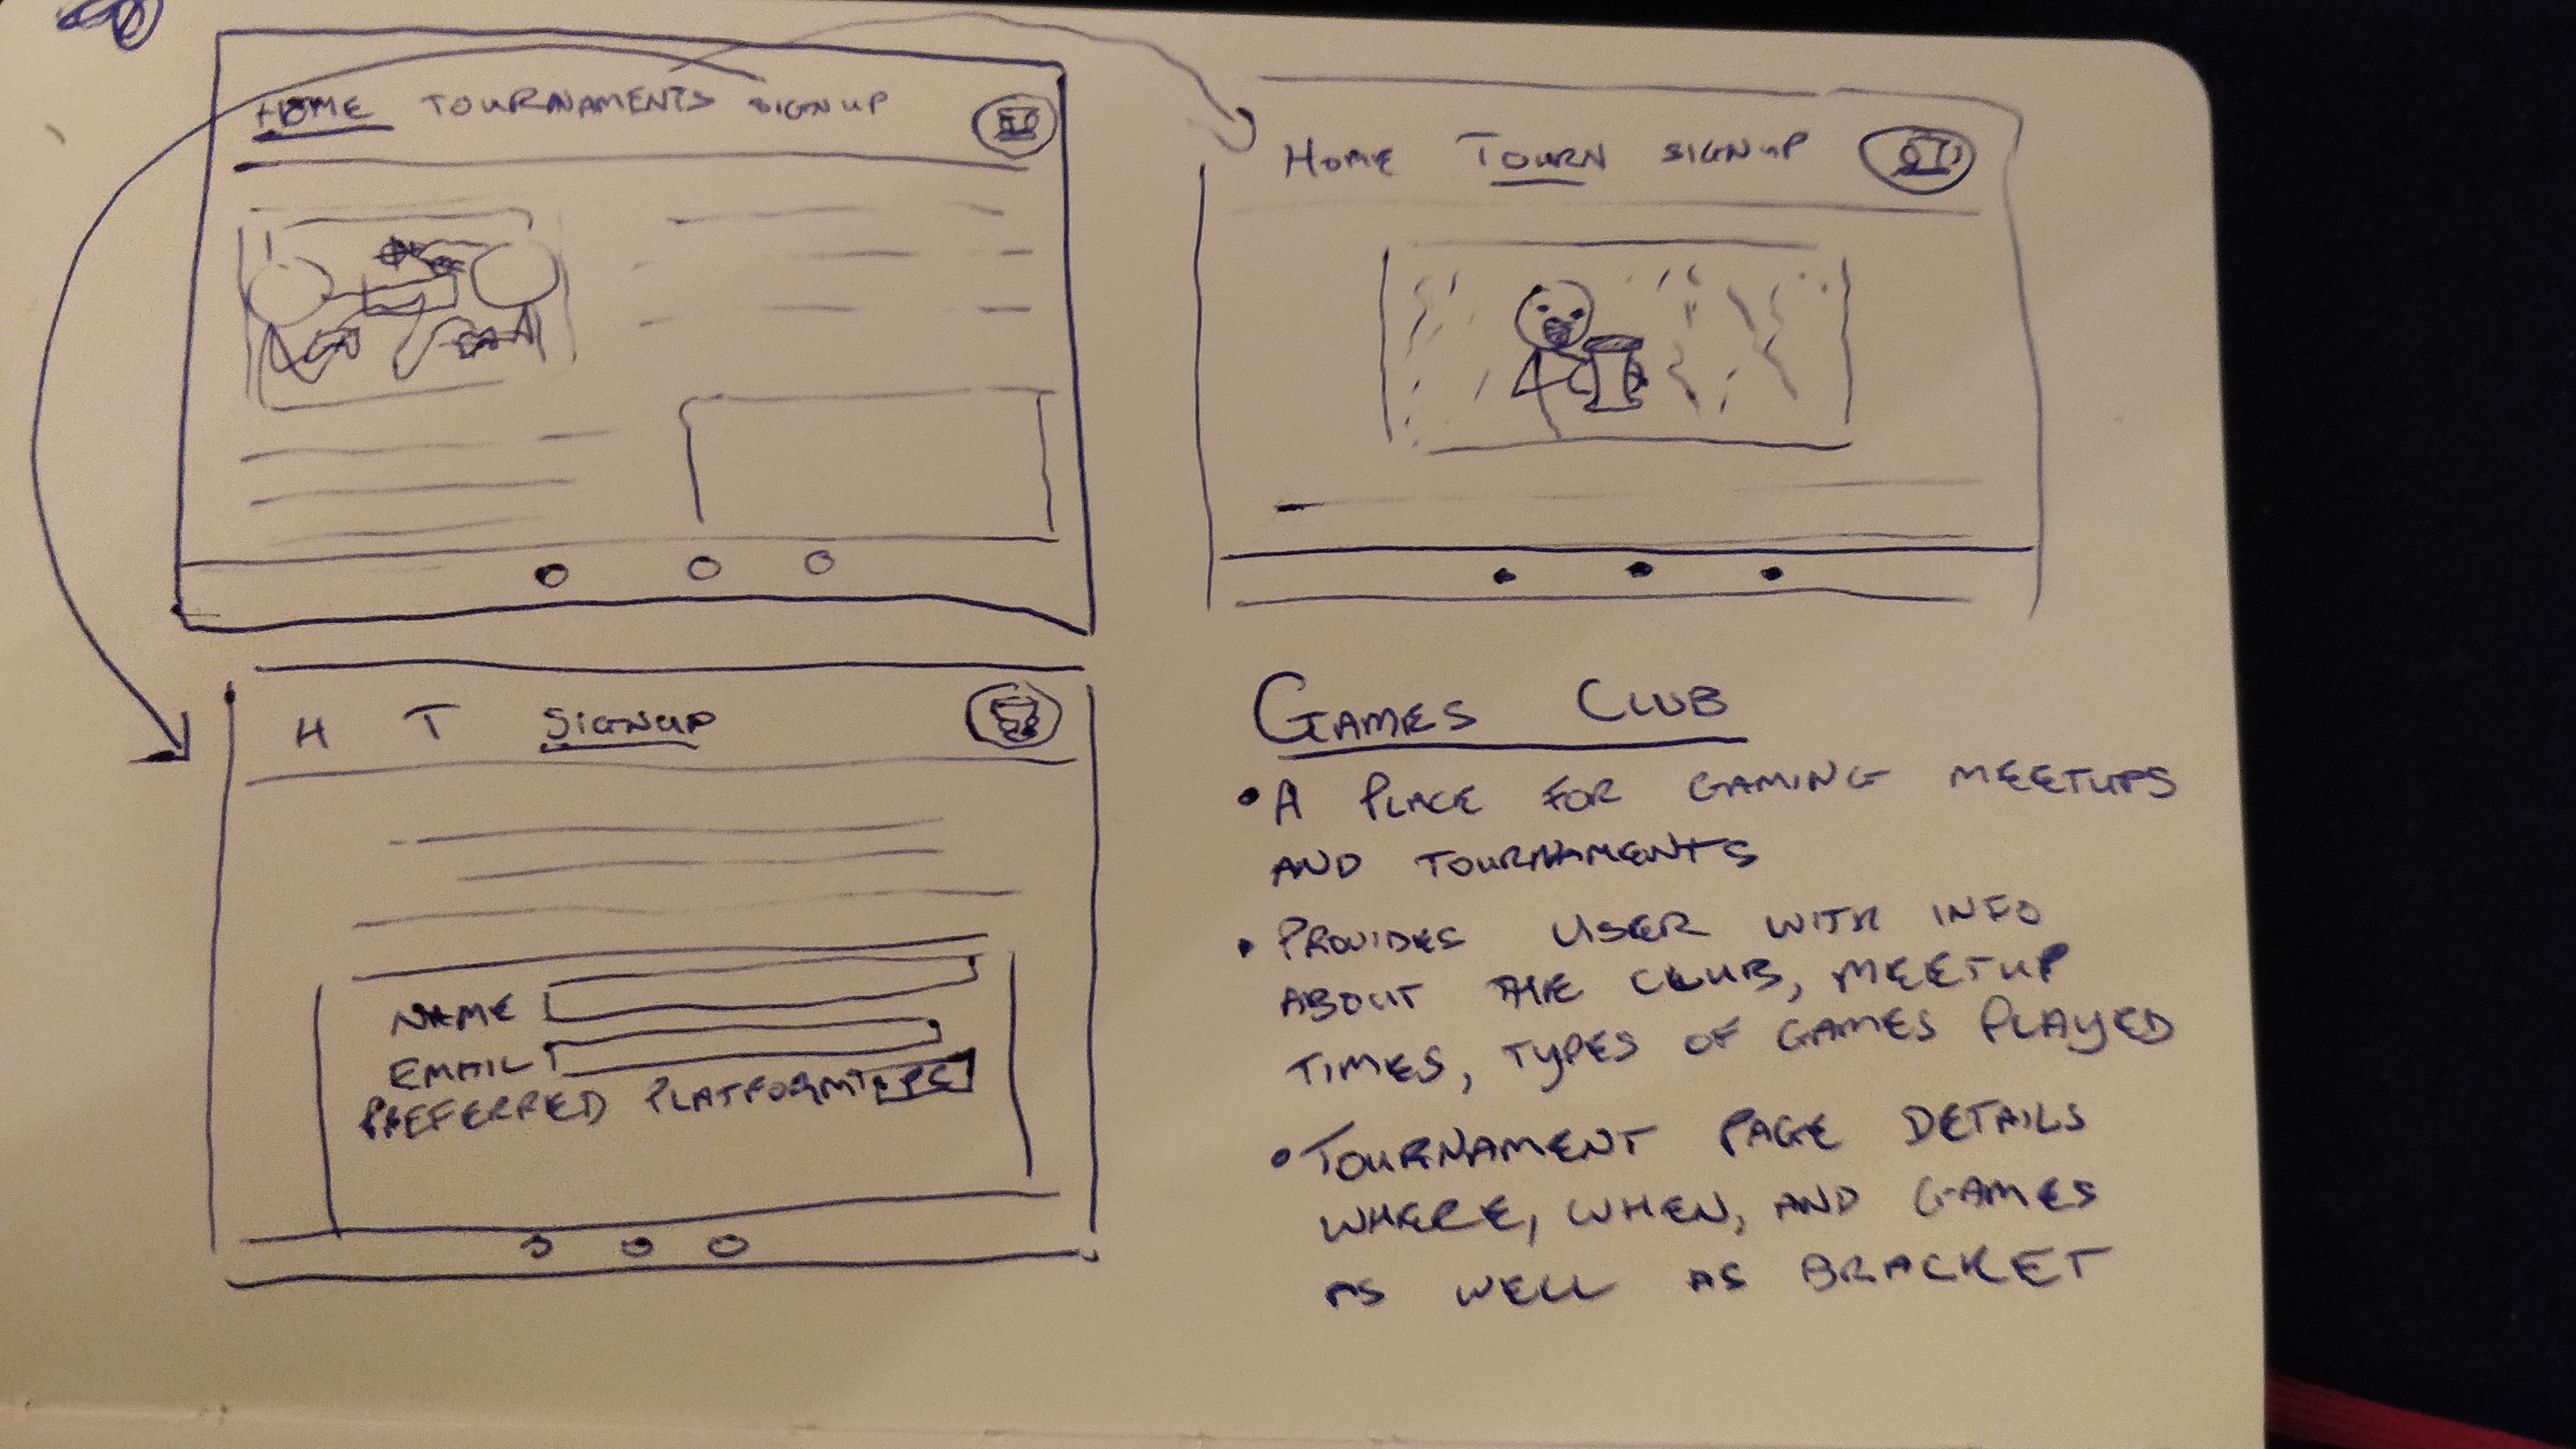 HOME TOURNAMENTS SIGNUP
HOME TOURN SIGNUP
H T SIGNUP
NAME
EMAIL
PREFERRED PLATFORM PC
GAMES CLUB
• A PLACE FOR GAMING MEETUPS
AND TOURNAMENTS
• PROVIDES USER WITH INFO
ABOUT THE CLUB, MEETUP
TIMES, TYPES OF GAMES PLAYED
• TOURNAMENT PAGE DETAILS
WHERE, WHEN, AND GAMES
AS WELL AS BRACKET